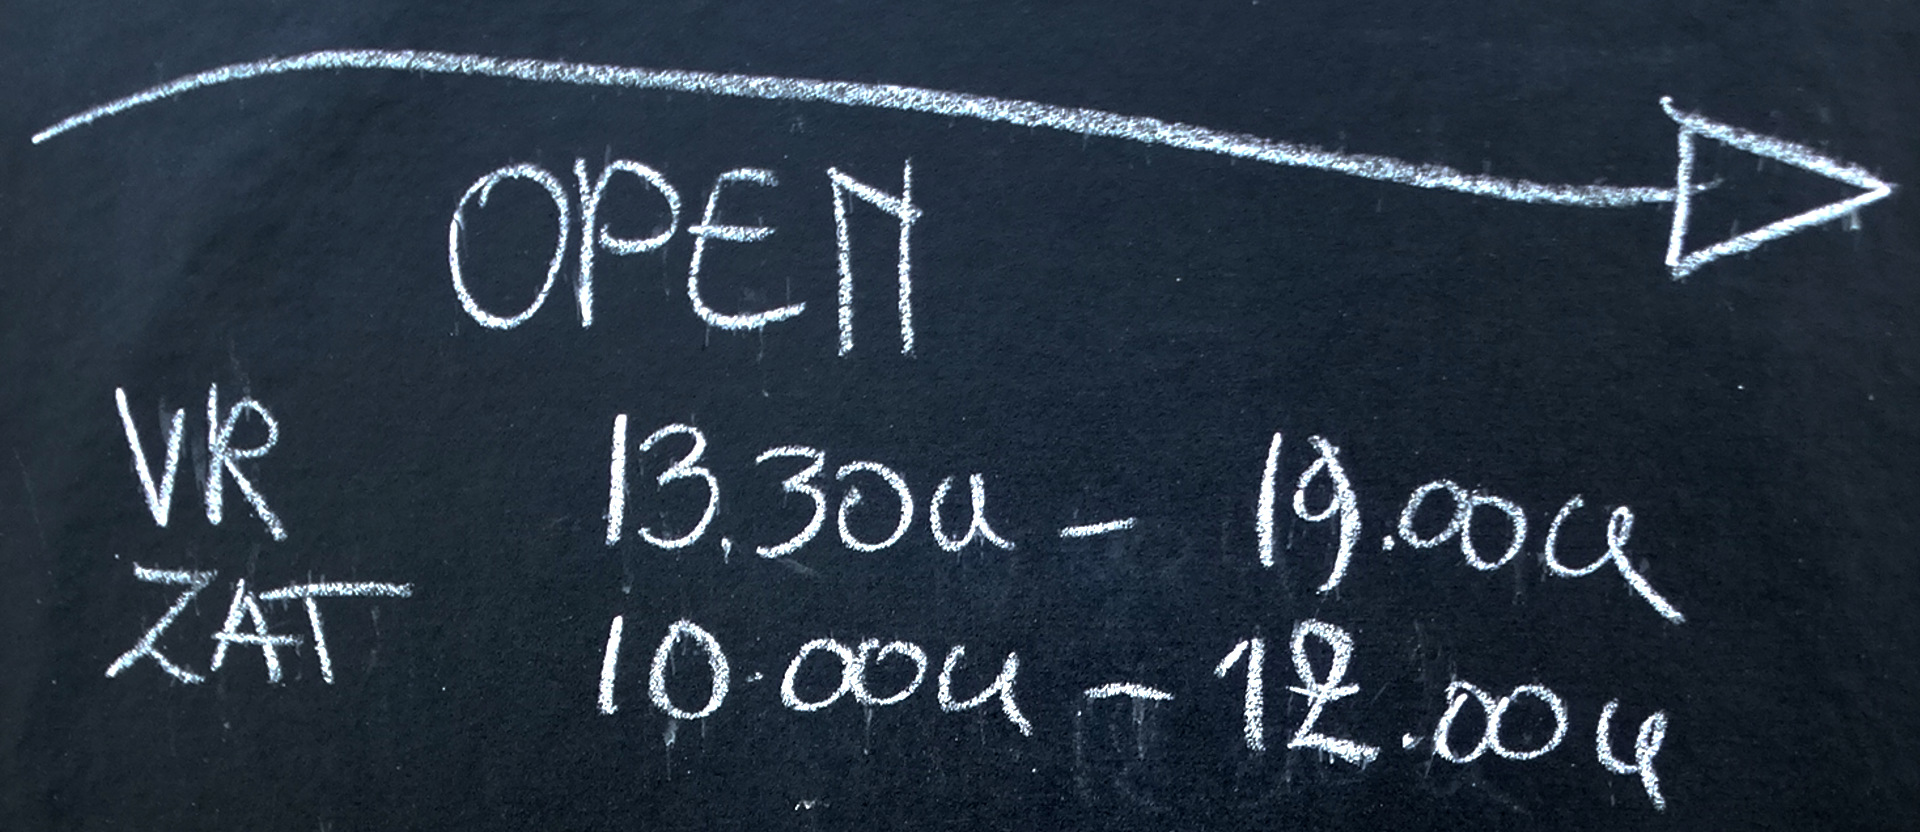 OPEN
VR 13.30u - 19.00u
ZAT 10.00u - 12.00u